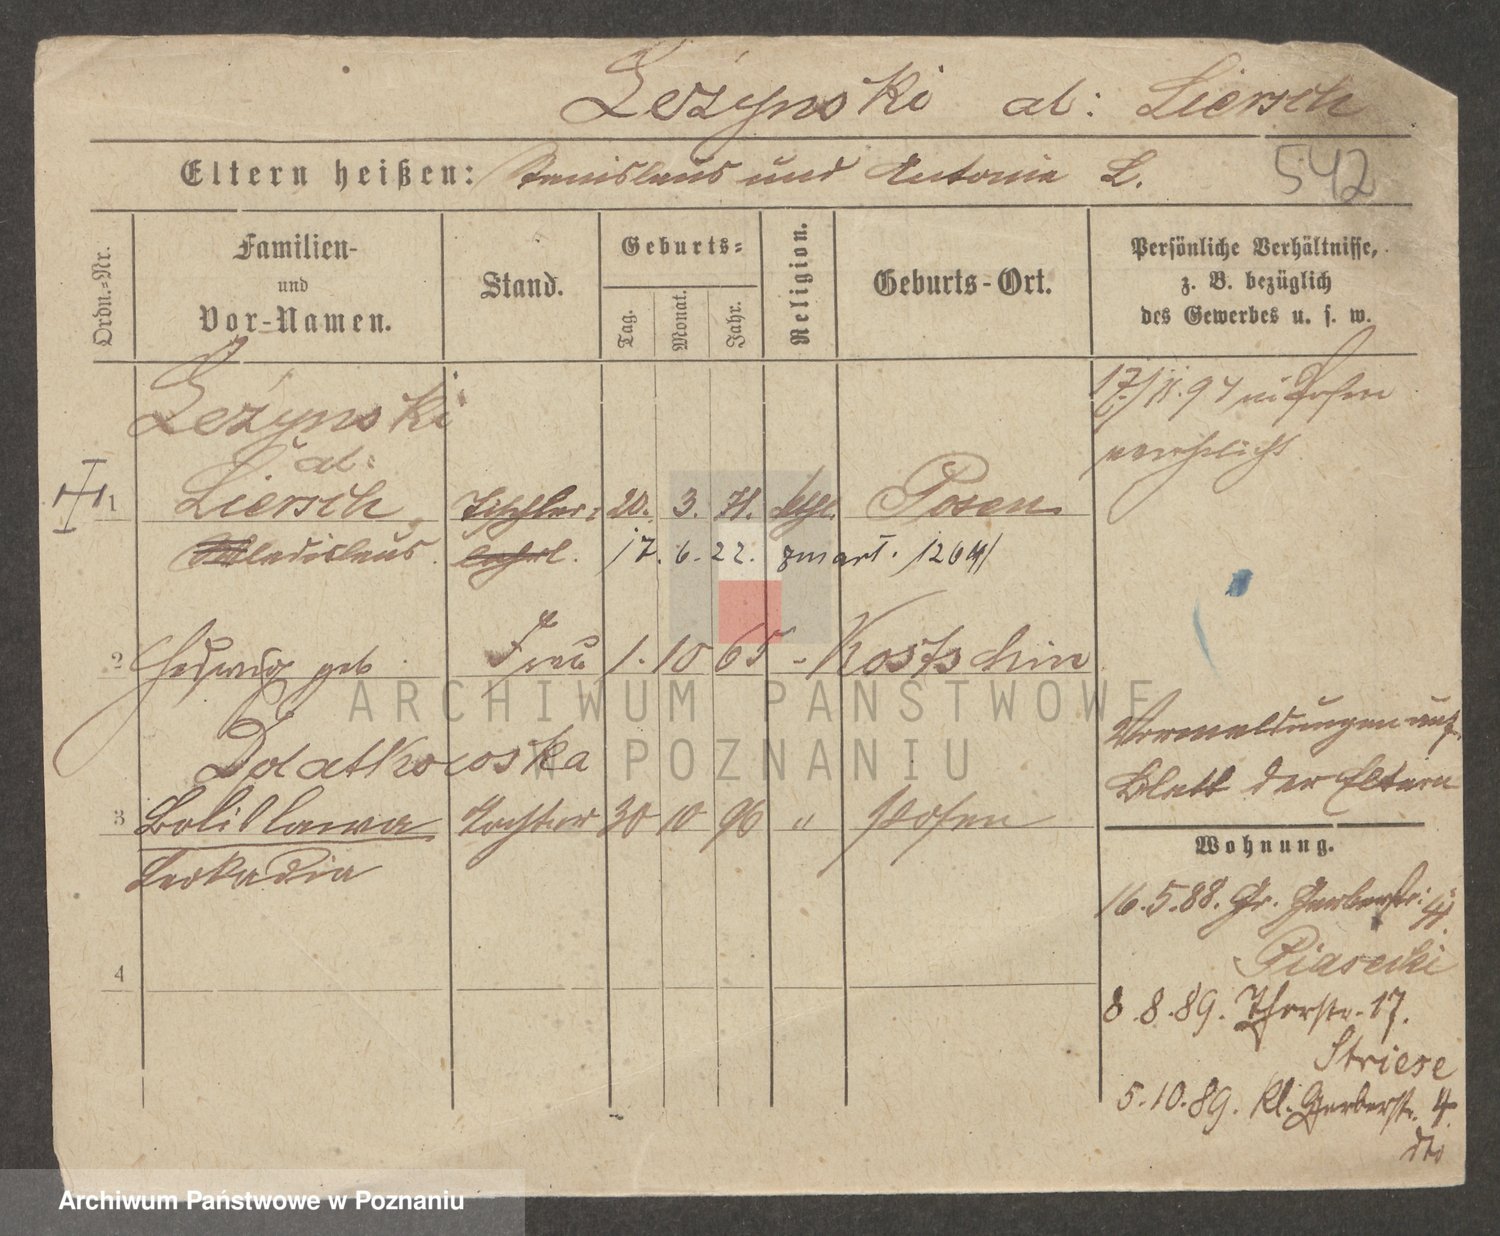 Leżynski al: Liersch
Eltern heißen: Stanislaus und Antonie L.
542
Ordn.-Nr.
Familien-
und
Vor-Namen.
Stand.
Geburts-
Tag.
Monat.
Jahr.
Religion.
Geburts-Ort.
Persönliche Verhältnisse,
z. B. bezüglich
des Gewerbes u. s. w.
Leżynski
al:
1 Liersch Tischler- 20. 3. 71. kath. Posen
Wladislaus lehrl. 17. 6. 22. zmarł. 1264/
17/11.97 in Posen
verehelicht
2 Hedwig geb Frau 1. 10 65 - Kostschin
Dolatkowska
3 Bolislawa Tochter 30 10 96 " Posen
Leokadia
4
Vermeldungen auf
Blatt der Eltern
Wohnung.
16.5.88. Gr. Gerberstr: 4.
Piasecki
8.8.89. Thorstr. 17.
Striese
5.10.89. Kl. Gerberstr. 4.
dto
ARCHIWUM PAŃSTWOWE
W POZNANIU
Archiwum Państwowe w Poznaniu